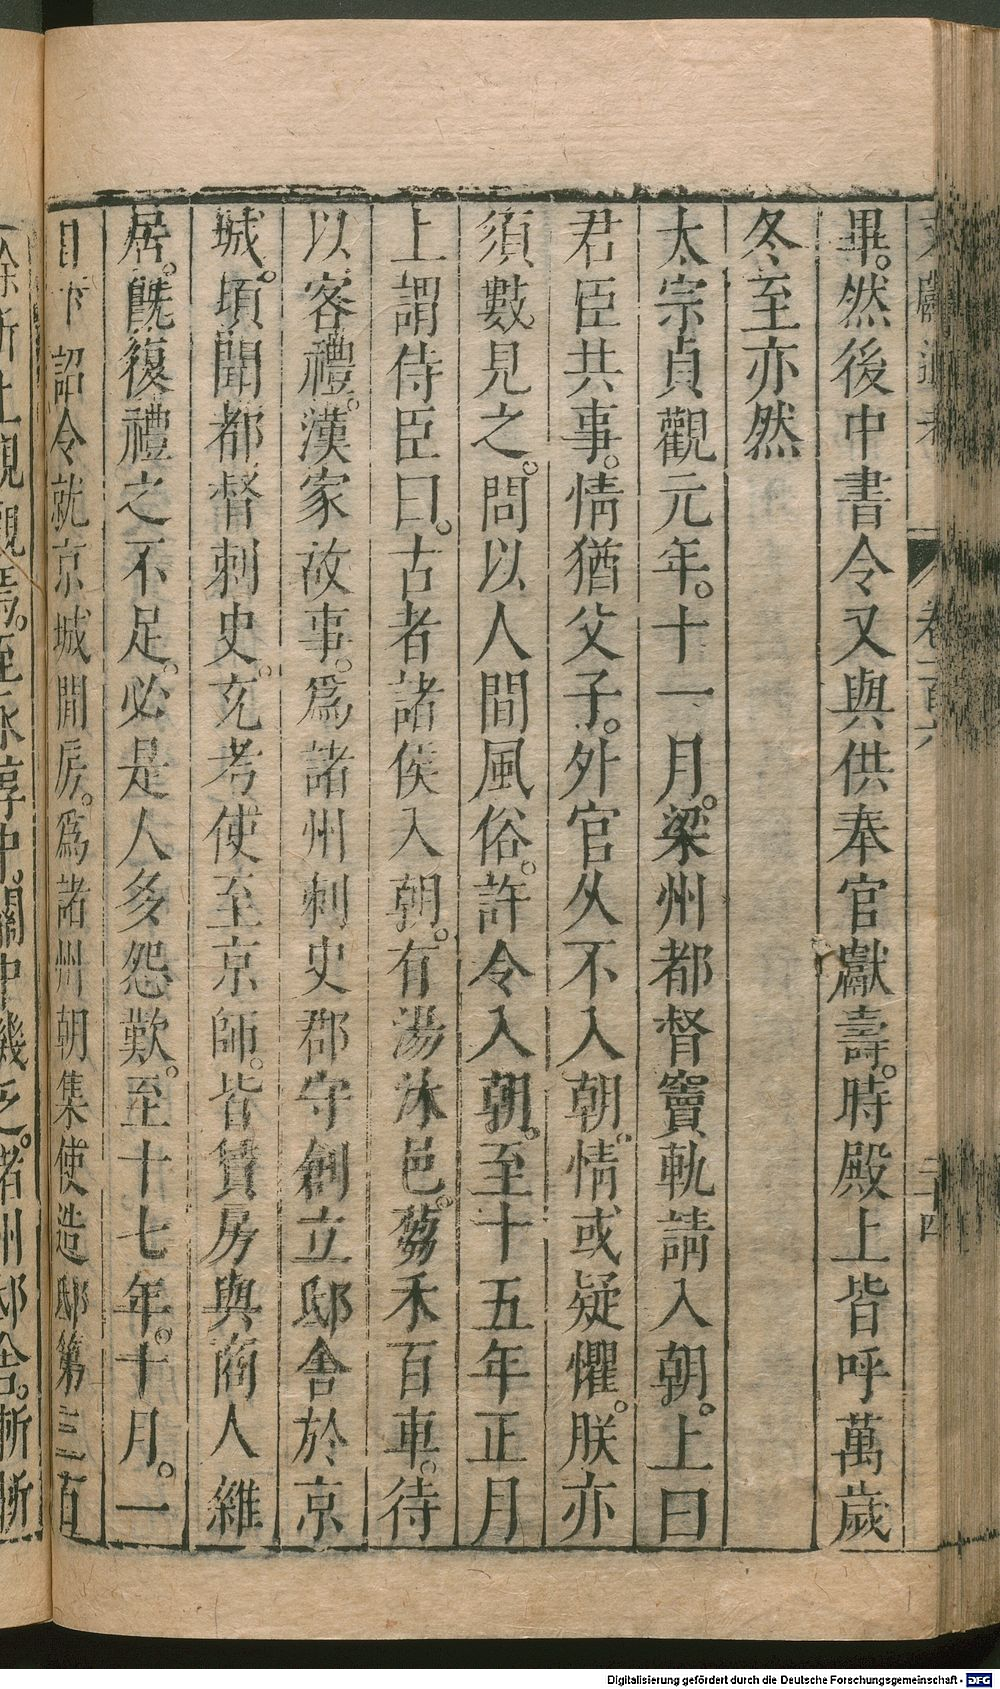 文獻通考 卷一百六 二十四
畢。然後中書令又與供奉官獻壽。時殿上皆呼萬歲
冬至亦然
太宗貞觀元年。十一月。梁州都督竇軌請入朝。上曰
君臣共事。情猶父子。外官久不入朝。情或疑懼。朕亦
須數見之。問以人間風俗。許令入朝。至十五年正月
上謂侍臣曰。古者諸侯入朝。有湯沐邑。芻禾百車。待
以客禮。漢家故事。爲諸州刺史郡守創立邸舍於京
城。頃聞都督刺史。充考使至京師。皆賃房與商人雜
居。旣復禮之不足。必是人多怨歎。至十七年。十月。一
日下詔令就京城閒房。爲諸州朝集使造邸第三百
觀焉。至永淳中。關中饑乏。諸州邸舍。漸漸
Digitalisierung gefördert durch die Deutsche Forschungsgemeinschaft - DFG